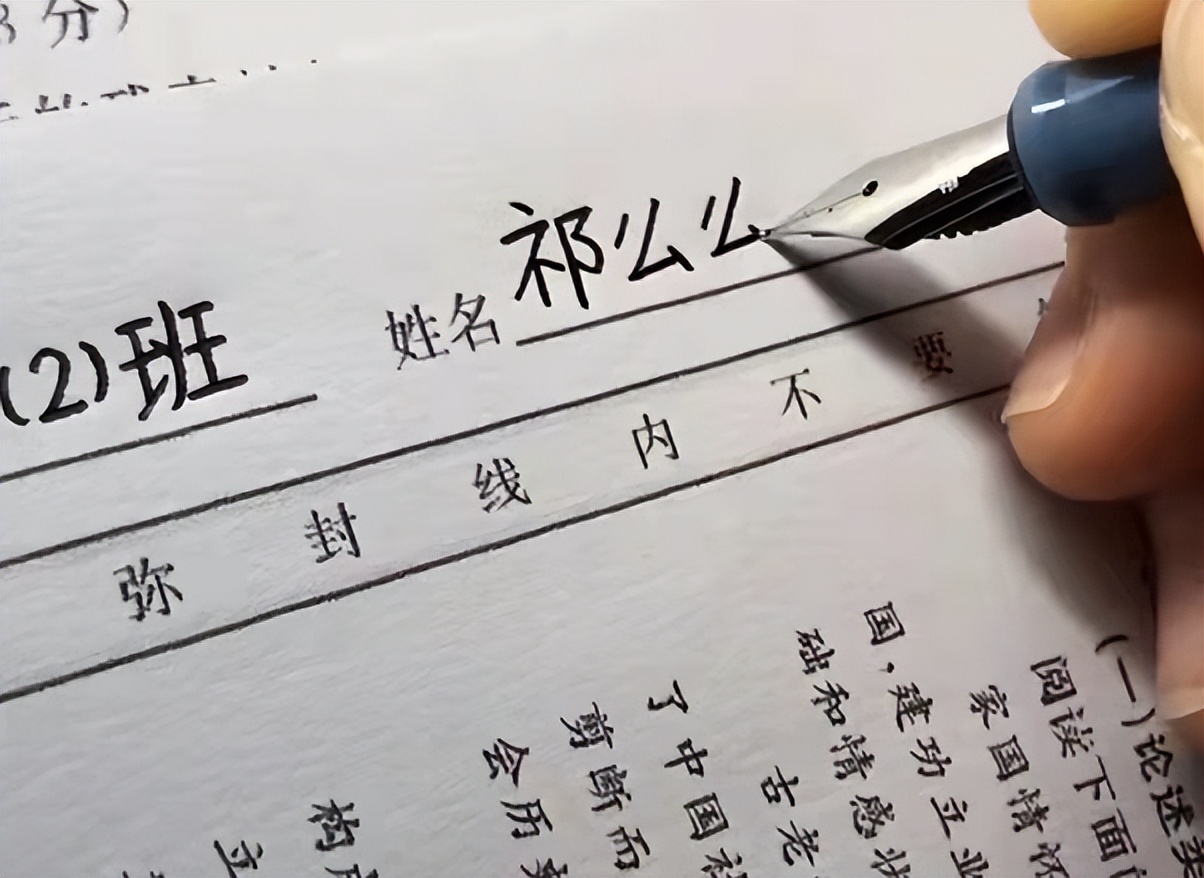 分）
(2)班 姓名 祁么么
弥封线内不要
（一）论述类
阅读下面
家国情怀
国，建功立业
础和情感
古老
了中国社
剪断而
会历
构
立